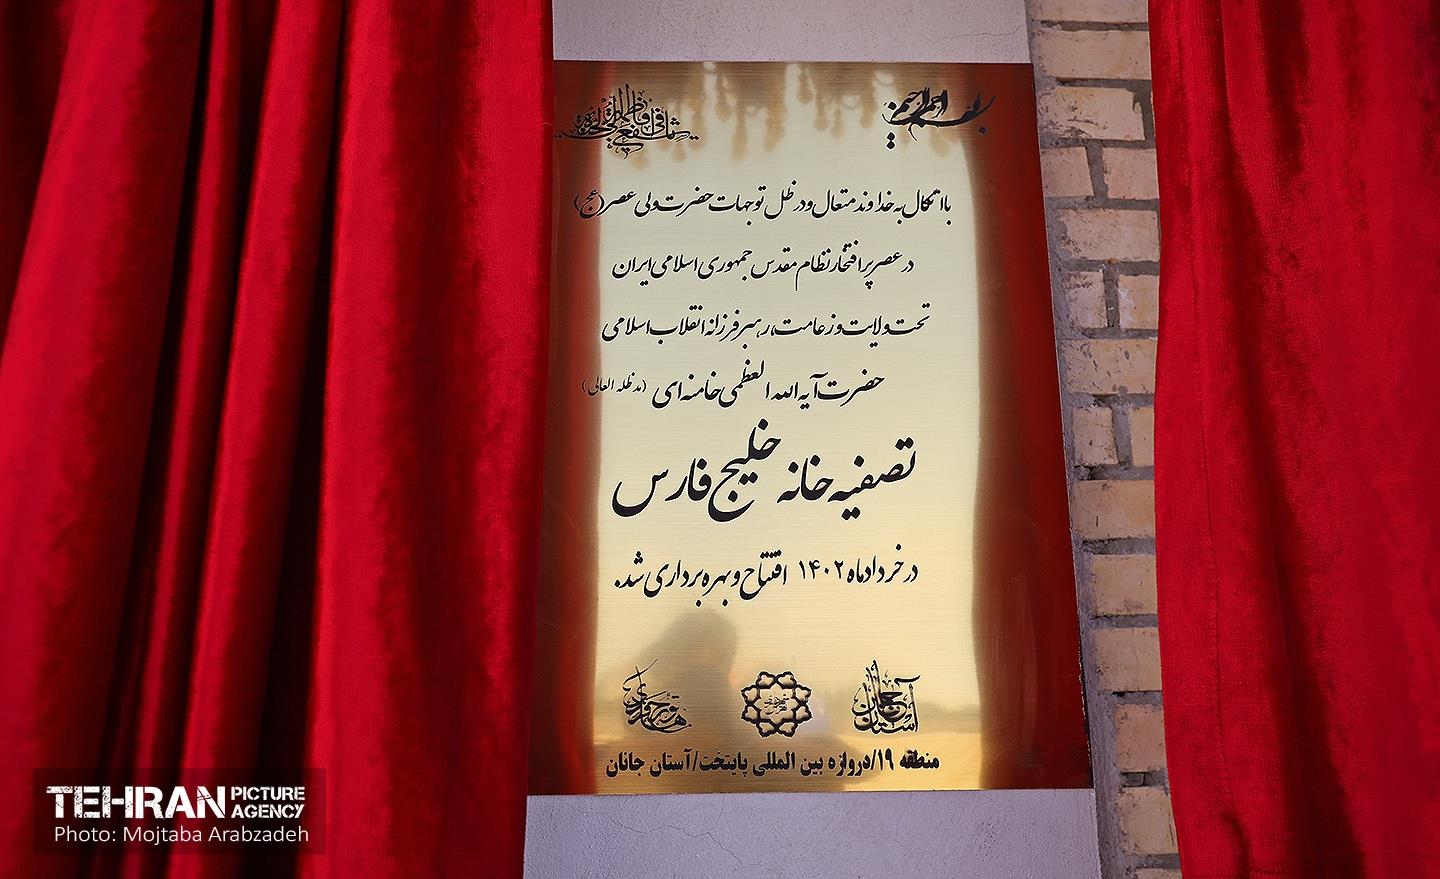 بسم الله الرحمن الرحیم
یا فاطمه اشفعی لی فی الجنة
با اتکال به خداوند متعال و در ظل توجهات حضرت ولی عصر (عج)
در عصر پر افتخار نظام مقدس جمهوری اسلامی ایران
تحت ولایت و زعامت رهبر فرزانه انقلاب اسلامی
حضرت آیه الله العظمی خامنه ای (مد ظله العالی)
تصفیه خانه خلیج فارس
در خرداد ماه ۱۴۰۲ افتتاح و بهره برداری شد.
آستان جانان
منطقه ۱۹/دروازه بین المللی پایتخت/آستان جانان
TEHRAN PICTURE AGENCY
Photo: Mojtaba Arabzadeh